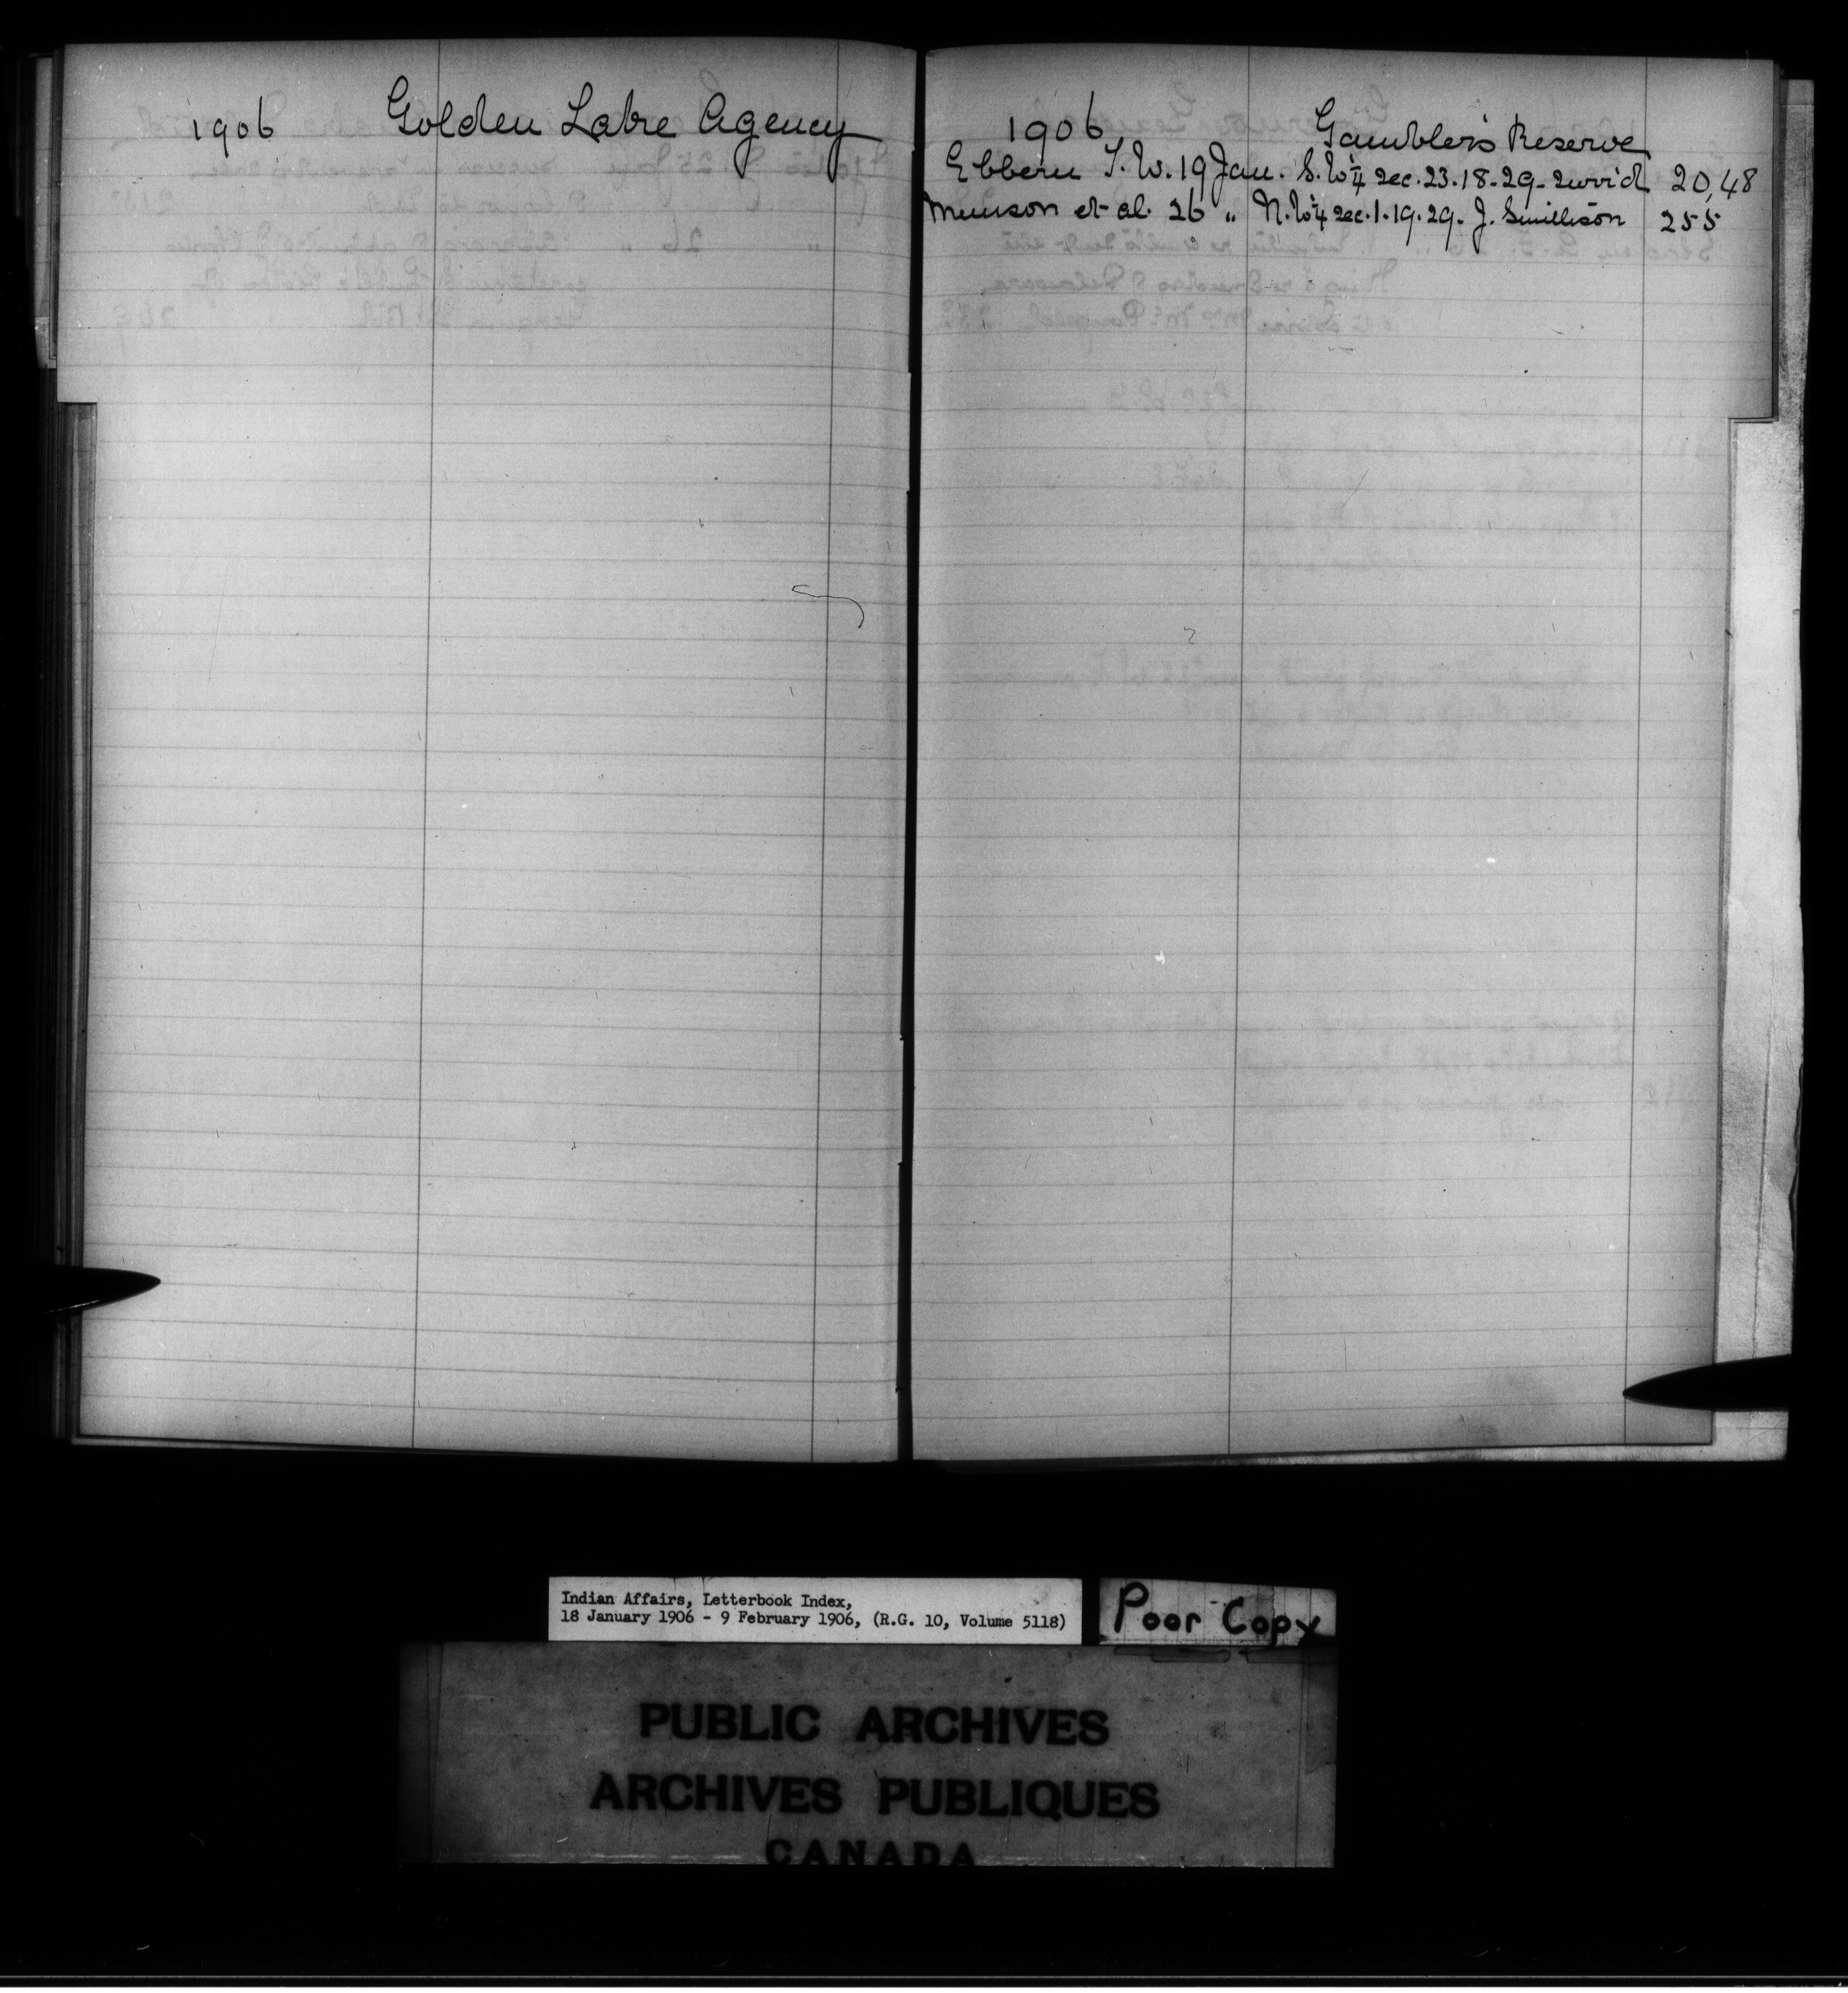 1906 Golden Lake Agency
1906 Gambler's Reserve
Ebbern T. W. 19 Jan. S.W¼ Sec. 23.18-29- 20,48
Munson et al. 26 " N.W¼ Sec. 1.19.29- J. Smillison 255
Indian Affairs, Letterbook Index,
18 January 1906 - 9 February 1906, (R.G. 10, Volume 5118)
Poor Copy
PUBLIC ARCHIVES
ARCHIVES PUBLIQUES
CANADA